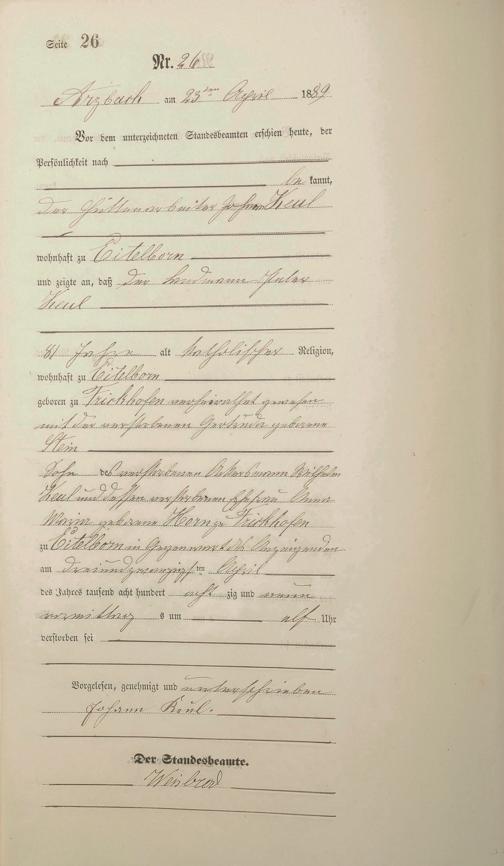 Seite 26
Nr. 26
Arzbach am 23ten April 1889
Vor dem unterzeichneten Standesbeamten erschien heute, der
Persönlichkeit nach
be kannt,
der Hüttenarbeiter Johann Keul
wohnhaft zu Eitelborn
und zeigte an, daß der Landmann Peter
Keul
81 Jahre alt katholischer Religion,
wohnhaft zu Eitelborn
geboren zu Frickhofen verheirathet gewesen
mit der verstorbenen Gertrud geborene
Stein
Sohn des verstorbenen Ackersmann Wilhelm
Keul und dessen verstorbenen Ehefrau Anna
Maria geborene Horn zu Frickhofen
zu Eitelborn in Gegenwart des Anzeigenden
am dreiundzwanzigsten April
des Jahres tausend acht hundert acht zig und neun
vormittag s um elf Uhr
verstorben sei
Vorgelesen, genehmigt und unterschrieben
Johann Keul.
Der Standesbeamte.
Weisbrod